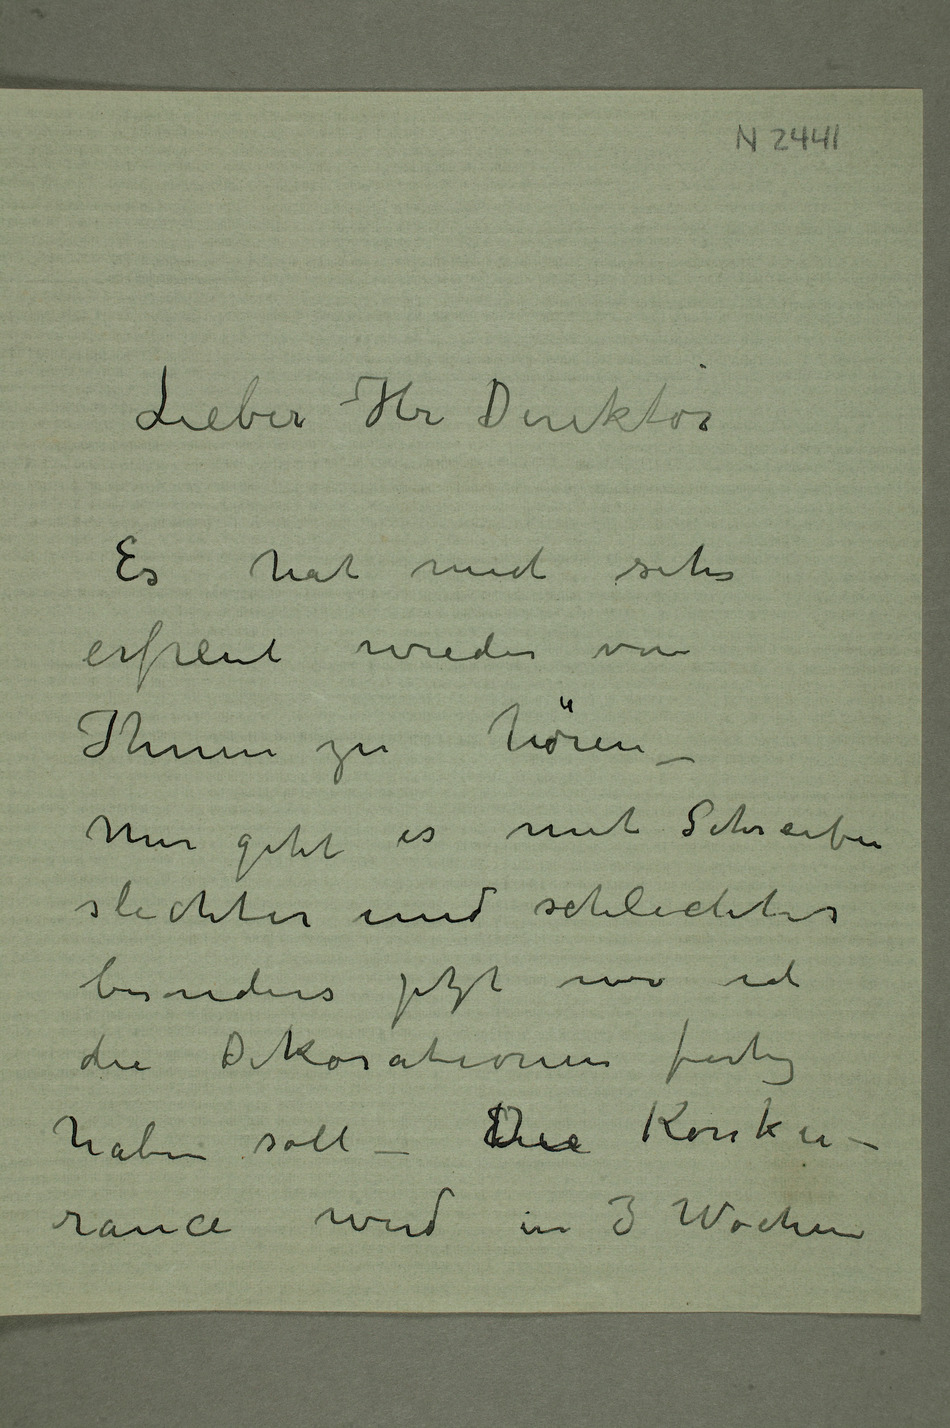 N 2441
Lieber Hr Direktor
Es hat mich sehr
erfreut wieder von
Ihnen zu hören_
Mir geht es mit Schreiben
slechter und schlechter
besonders jetzt wo ich
die Dekorationen fertig
haben soll – Die Konku–
rance wird in 3 Wochen